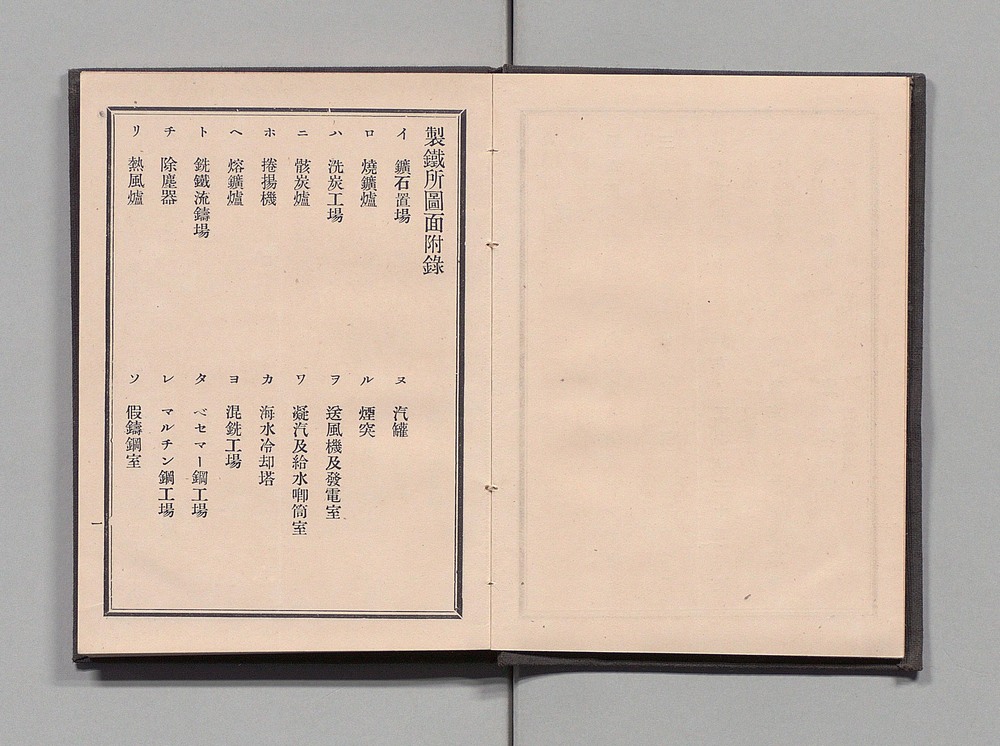 製鐵所圖面附錄
イ 鑛石置場
ロ 燒鑛爐
ハ 洗炭工場
ニ 骸炭爐
ホ 捲揚機
ヘ 熔鑛爐
ト 銑鐵流鑄場
チ 除塵器
リ 熱風爐
ヌ 汽罐
ル 煙突
ヲ 送風機及發電室
ワ 凝汽及給水喞筒室
カ 海水冷却塔
ヨ 混銑工場
タ ベセマー鋼工場
レ マルチン鋼工場
ソ 假鑄鋼室
一